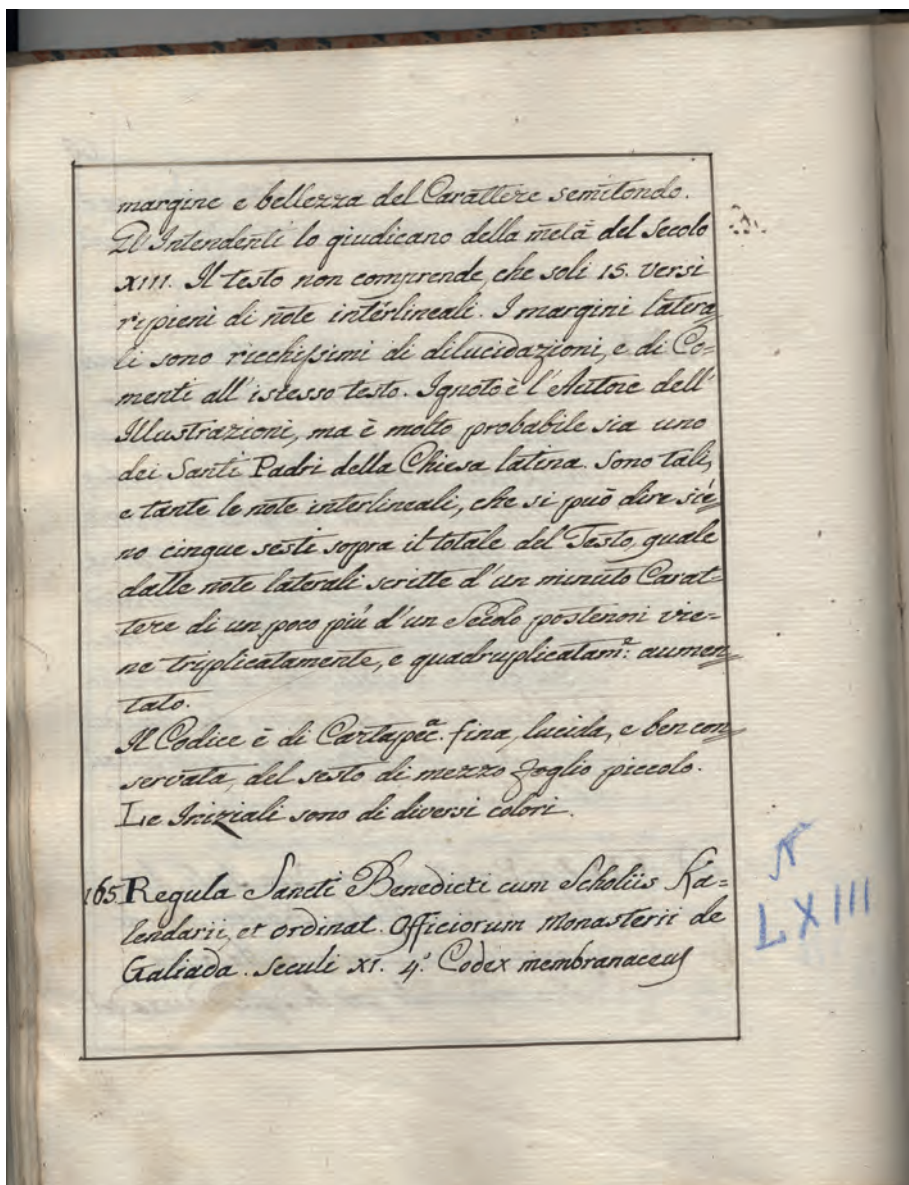 margine e bellezza del Carattere semitondo.
Gl'Intendenti lo giudicano della metà del Secolo
XIII. Il testo non comprende, che soli 15. versi
ripieni di note interlineali. I margini latera=
li sono ricchissimi di dilucidazioni, e di Co=
menti all'istesso testo. Ignoto è l'Autore dell'
Illustrazioni, ma è molto probabile sia uno
dei Santi Padri della Chiesa latina. Sono tali,
e tante le note interlineali, che si può dire sié=
no cinque sesti sopra il totale del Testo, quale
dalle note laterali scritte d'un minuto Carat=
tere di un poco più d'un Secolo posteriori vie=
ne triplicatamente, e quadruplicatam.e aumen=
tato.
Il Codice è di Cartapec.a fina, lucida, e ben con=
servata, del sesto di mezzo foglio piccolo.
Le Iniziali sono di diversi colori.
165. Regula Sancti Benedicti cum Scholiis Ka=
lendarii, et ordinat. Officiorum Monasterii de
Galiada. Seculi XI. 4.o Codex membranaceus
LXIII